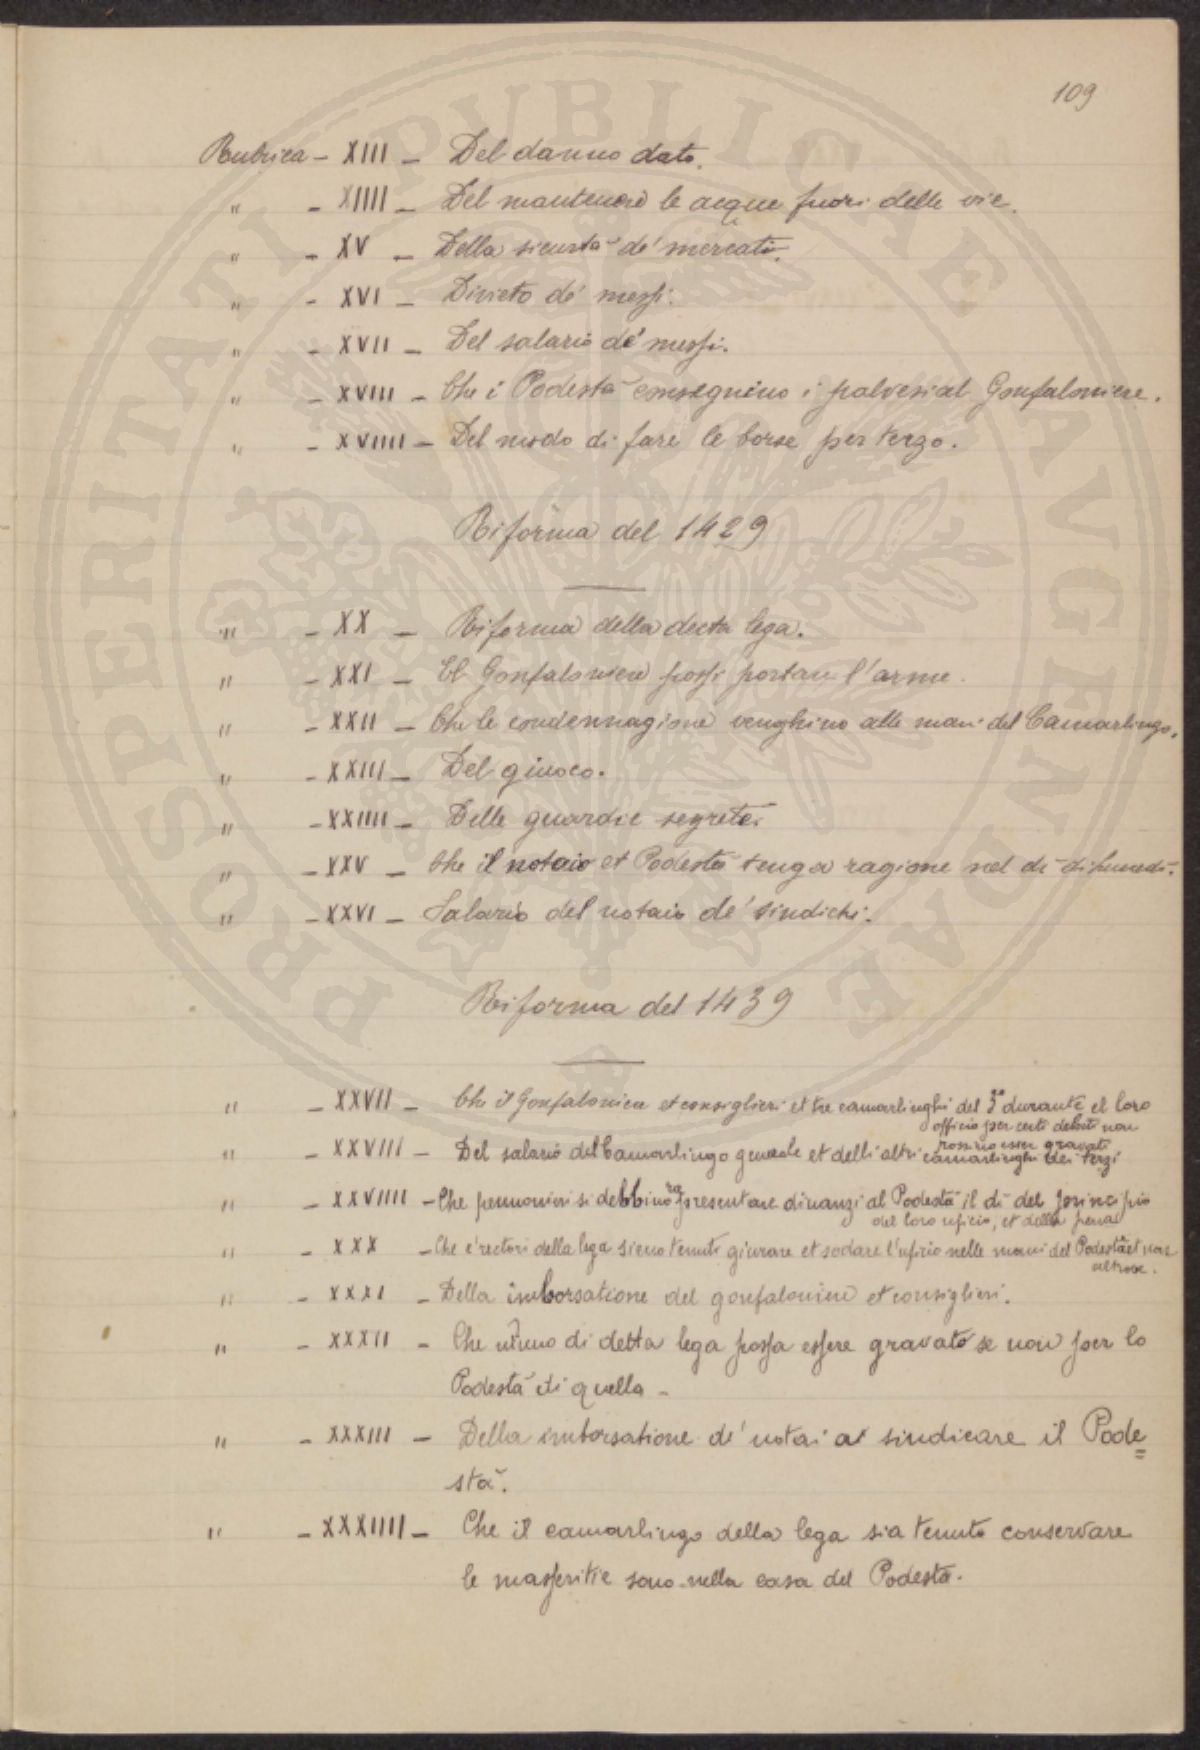 109
Rubrica - XIII - Del danno dato.
" - XIIII - Del mantenere le acque fuori delle vie.
" - XV - Della sicurtà de' mercati.
" - XVI - Divieto de' messi.
" - XVII - Del salario de' messi.
" - XVIII - Che i Podestà consegnino i palvesi al Gonfaloniere.
" - XVIIII - Del modo di fare le borse per terzo.
Riforma del 1429
" - XX - Riforma della decta lega.
" - XXI - El Gonfaloniere possi portare l'arme.
" - XXII - Che le condennagione venghino alle mani del Camarlingo.
" - XXIII - Del giuoco.
" - XXIIII - Delle guardie segrete.
" - XXV - Che il notaio et Podestà tenga ragione nel dì di lunedì.
" - XXVI - Salario del notaio de' sindichi.
Riforma del 1439
" - XXVII - Che il Gonfaloniere et consiglieri et tre camarlinghi del 3° durante el loro
officio per certi debiti non
possino esser gravati
" - XXVIII - Del salario del Camarlingo generale et delli altri camarlinghi dei terzi
" - XXVIIII - Che pennonieri si debbino rapresentare dinanzi al Podestà il dì del principio
del loro uficio, et della pena
" - XXX - Che e' rectori della lega sieno tenuti giurare et sodare l'uficio nelle mani del Podestà et non
altrove.
" - XXXI - Della imborsatione del gonfaloniere et consiglieri.
" - XXXII - Che niuno di detta lega possa essere gravato se non per lo
Podestà di quella -
" - XXXIII - Della imborsatione de' notai a sindicare il Pode=
stà.
" - XXXIIII - Che il camarlingo della lega sia tenuto conservare
le masseritie sono nella casa del Podestà.
PROSPERITATI PUBLICAE AVGENDAE